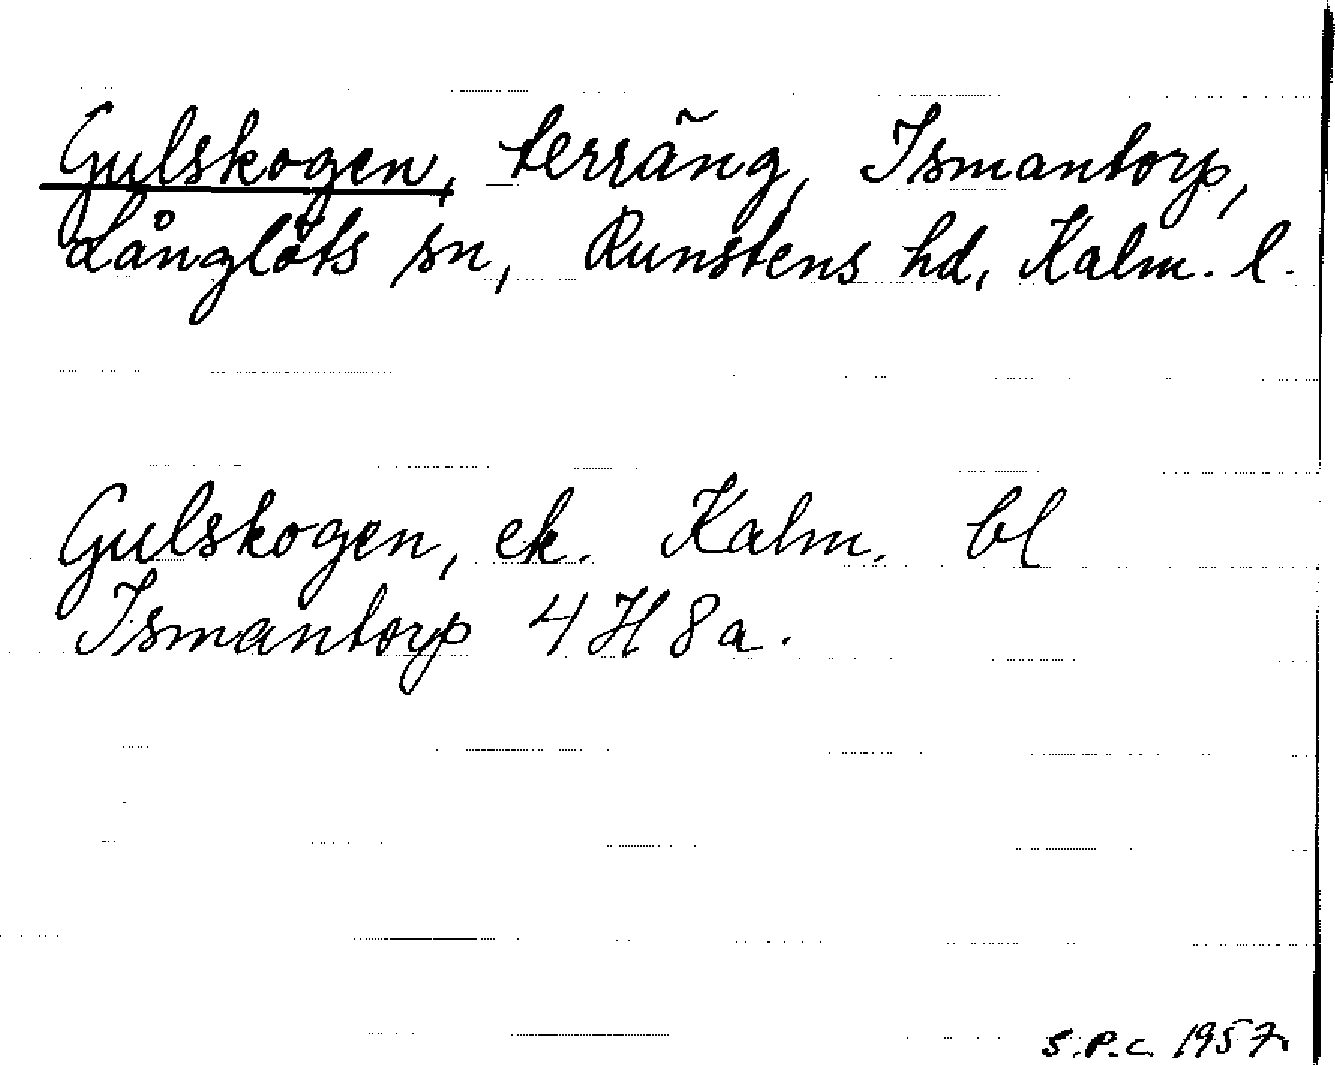 Gulskogen, terräng, Ismantorp,
Långlöts sn, Runstens hd, Kalm. l.
Gulskogen, ek. Kalm. bl
Ismantorp 4 H 8 a.
S.P.C. 1957.